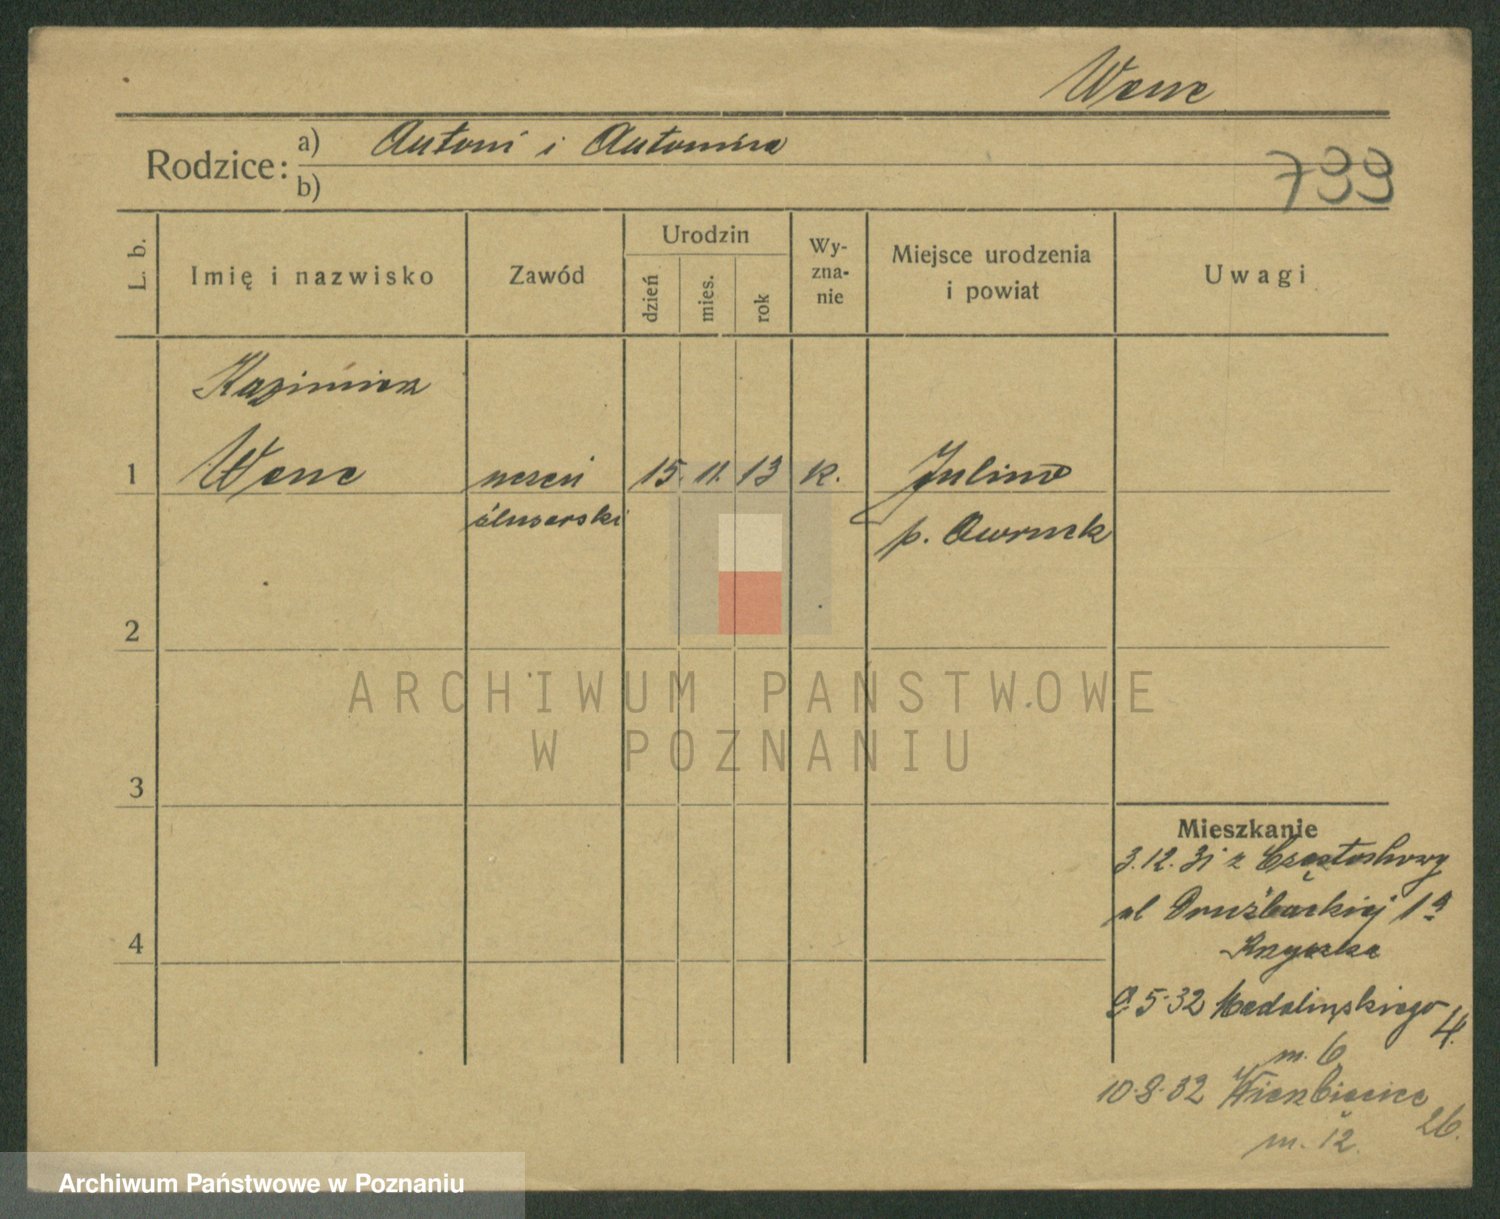 Wenc
Rodzice: a) Antoni i Antonina
b)
733
L. b. Imię i nazwisko Zawód Urodzin dzień mies. rok Wy-zna-nie Miejsce urodzenia i powiat Uwagi
Kazimierz
1 Wenc uczeń 15. 11. 13 k. Julino
ślusarski p. Owruck
2
ARCHIWUM PAŃSTWOWE
W POZNANIU
3
Mieszkanie
3.12.31 z Częstochowy
ul Drużbackiej 1a
4
9.5.32 Madalińskiego 4.
m. 6
10.8.32 Wierzbięcice 26.
m. 12
Archiwum Państwowe w Poznaniu